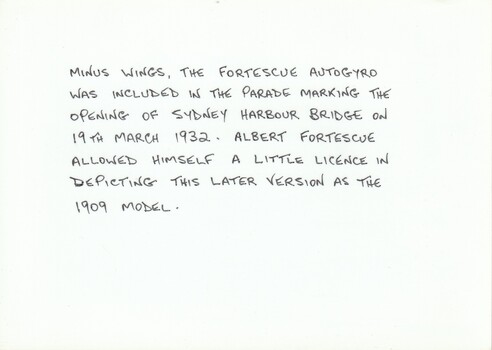 MINUS WINGS, THE FORTESCUE AUTOGYRO
WAS INCLUDED IN THE PARADE MARKING THE
OPENING OF SYDNEY HARBOUR BRIDGE ON
19TH MARCH 1932. ALBERT FORTESCUE
ALLOWED HIMSELF A LITTLE LICENCE IN
DEPICTING THIS LATER VERSION AS THE
1909 MODEL.